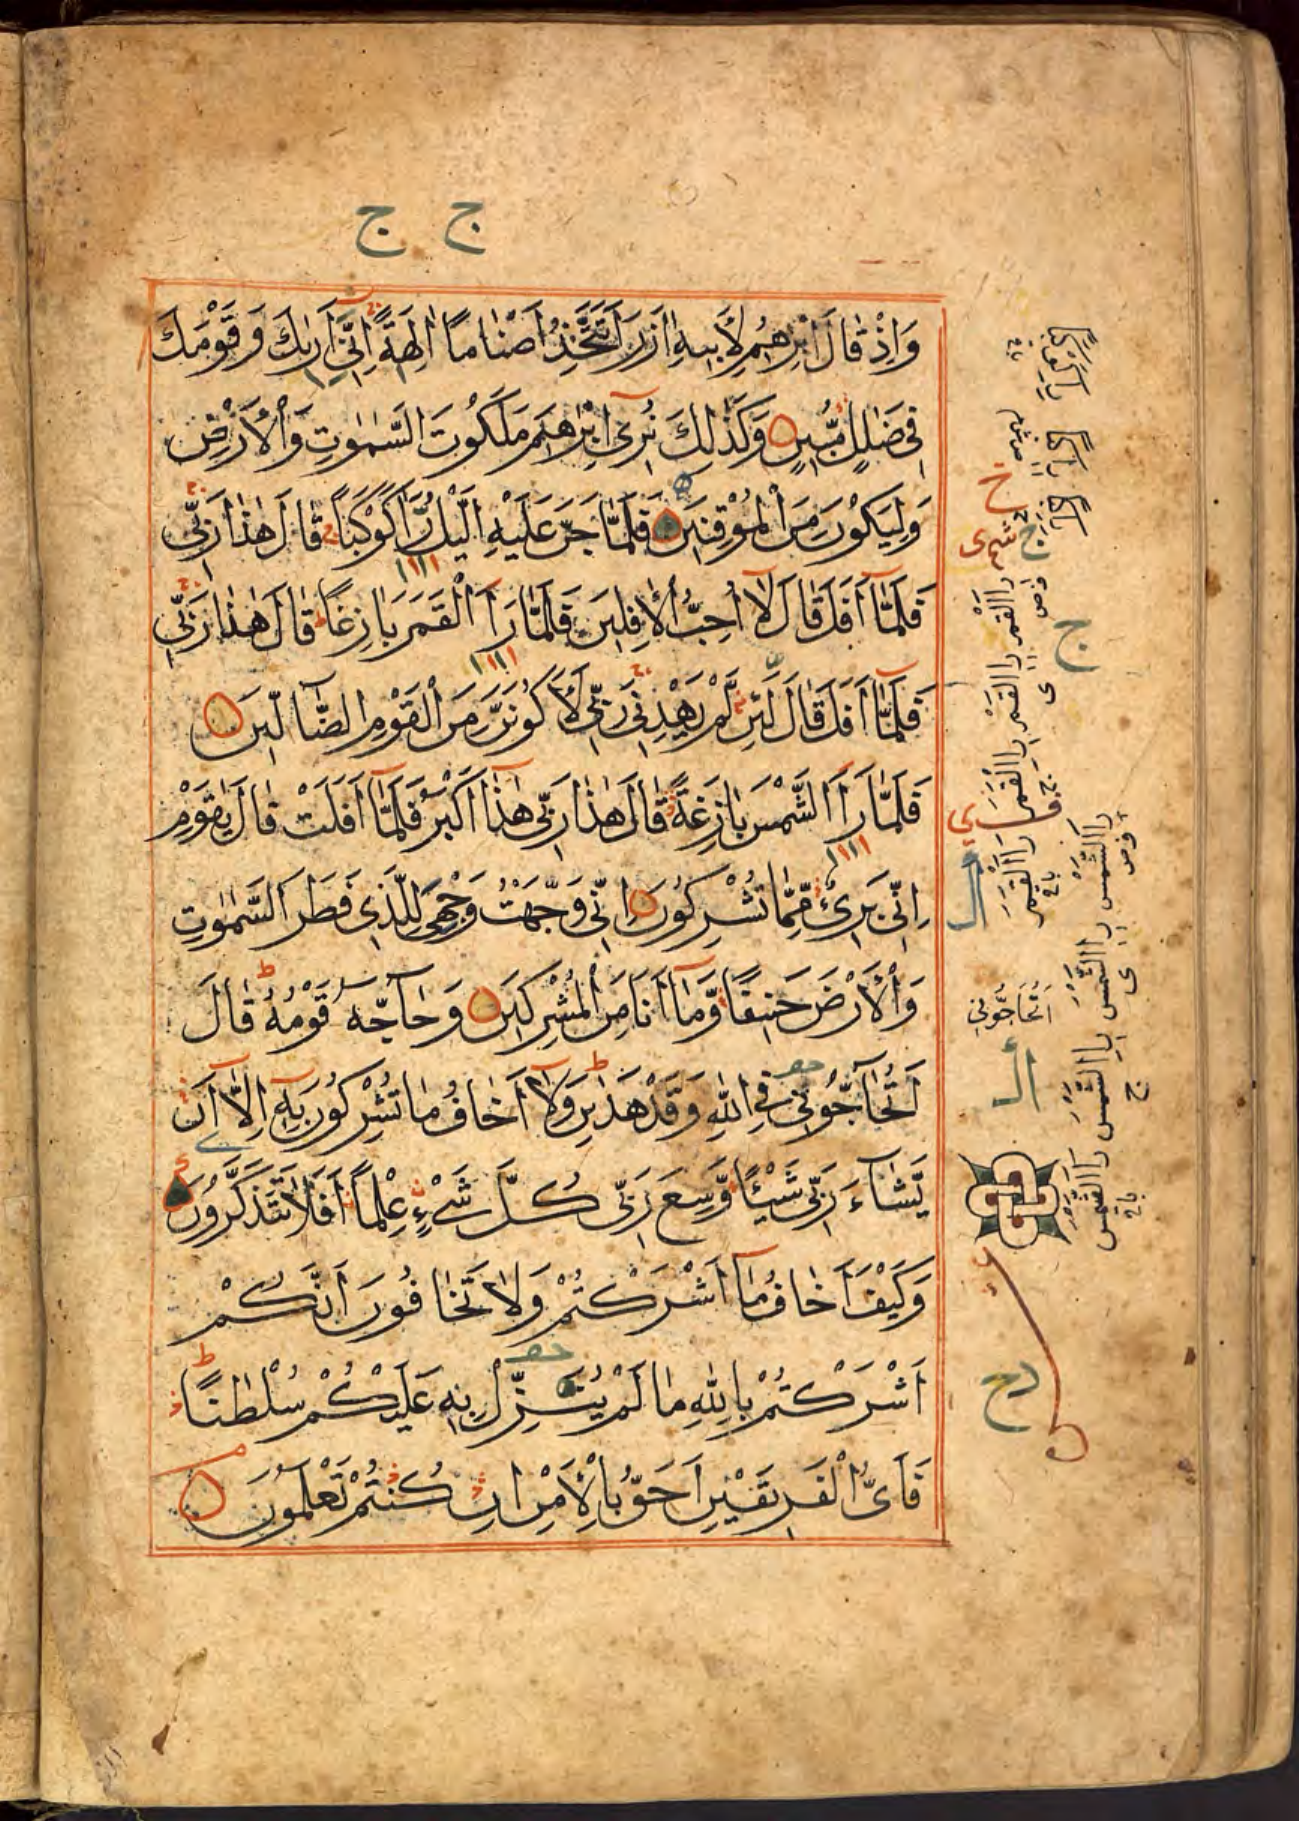 ج ج
وَاِذْ قَالَ اِبْرٰهِيْمُ لِاَبِيْهِ اٰزَرَ اَتَتَّخِذُ اَصْنَامًا اٰلِهَةً اِنِّيْ اَرٰىكَ وَقَوْمَكَ
فِيْ ضَلٰلٍ مُّبِيْنٍ وَكَذٰلِكَ نُرِيْ اِبْرٰهِيْمَ مَلَكُوْتَ السَّمٰوٰتِ وَالْاَرْضِ
وَلِيَكُوْنَ مِنَ الْمُوْقِنِيْنَ فَلَمَّا جَنَّ عَلَيْهِ الَّيْلُ رَاٰ كَوْكَبًا قَالَ هٰذَا رَبِّيْ
فَلَمَّا اَفَلَ قَالَ لَا اُحِبُّ الْاٰفِلِيْنَ فَلَمَّا رَاَ الْقَمَرَ بَازِغًا قَالَ هٰذَا رَبِّيْ
فَلَمَّا اَفَلَ قَالَ لَئِنْ لَّمْ يَهْدِنِيْ رَبِّيْ لَاَكُوْنَنَّ مِنَ الْقَوْمِ الضَّالِّيْنَ
فَلَمَّا رَاَ الشَّمْسَ بَازِغَةً قَالَ هٰذَا رَبِّيْ هٰذَا اَكْبَرُ فَلَمَّا اَفَلَتْ قَالَ يٰقَوْمِ
اِنِّيْ بَرِيْءٌ مِّمَّا تُشْرِكُوْنَ اِنِّيْ وَجَّهْتُ وَجْهِيَ لِلَّذِيْ فَطَرَ السَّمٰوٰتِ
وَالْاَرْضَ حَنِيْفًا وَّمَا اَنَا مِنَ الْمُشْرِكِيْنَ وَحَاجَّهٗ قَوْمُهٗ قَالَ
اَتُحَاجُّوْنِّيْ فِي اللّٰهِ وَقَدْ هَدٰىنِ وَلَا اَخَافُ مَا تُشْرِكُوْنَ بِهٖ اِلَّا اَنْ
يَّشَاءَ رَبِّيْ شَيْئًا وَّسِعَ رَبِّيْ كُلَّ شَيْءٍ عِلْمًا اَفَلَا تَتَذَكَّرُوْنَ
وَكَيْفَ اَخَافُ مَا اَشْرَكْتُمْ وَلَا تَخَافُوْنَ اَنَّكُمْ
اَشْرَكْتُمْ بِاللّٰهِ مَا لَمْ يُنَزِّلْ بِهٖ عَلَيْكُمْ سُلْطٰنًا
فَاَيُّ الْفَرِيْقَيْنِ اَحَقُّ بِالْاَمْنِ اِنْ كُنْتُمْ تَعْلَمُوْنَ
ج
اَتُحَاجُّوْنِيْ